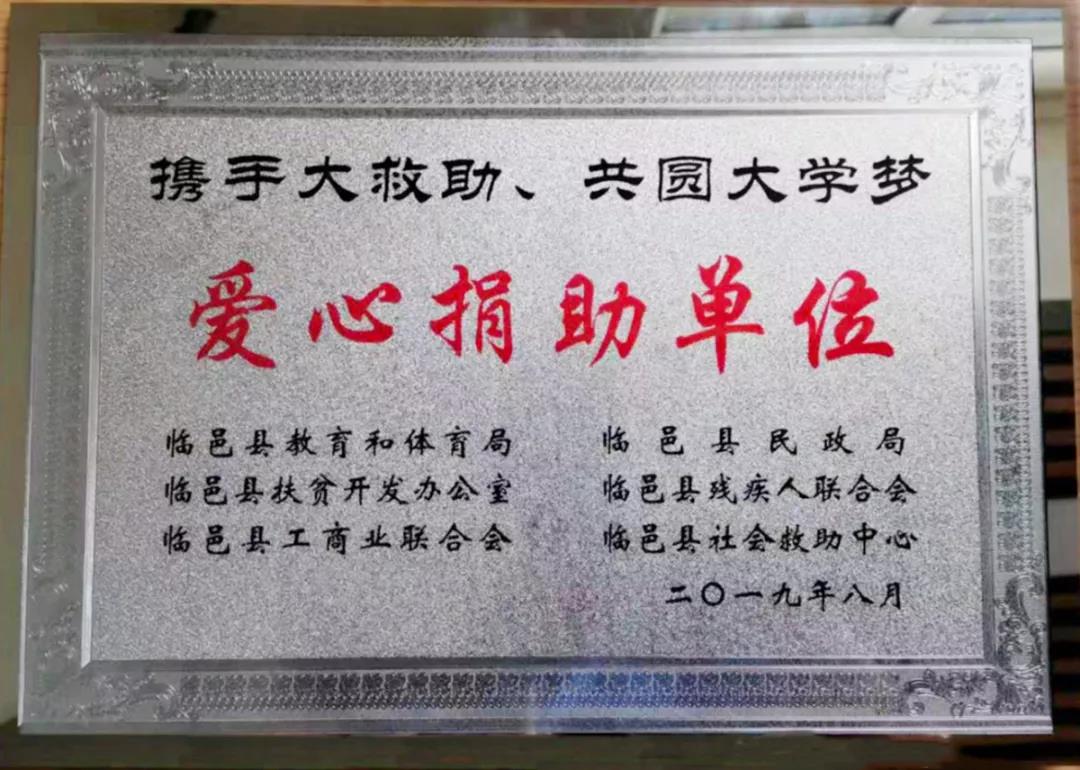 携手大救助、共圆大学梦
爱心捐助单位
临邑县教育和体育局 临邑县民政局
临邑县扶贫开发办公室 临邑县残疾人联合会
临邑县工商业联合会 临邑县社会救助中心
二〇一九年八月